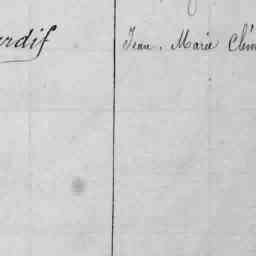 rdif Jean. Marie Clém